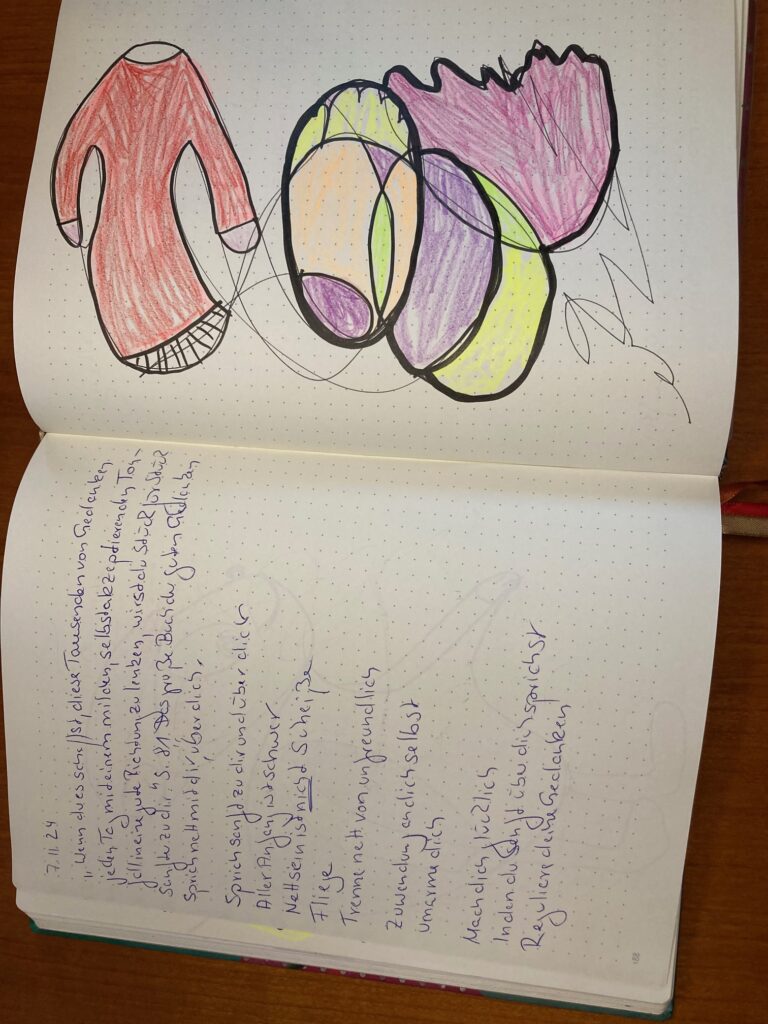 7.11.24
"Wenn du es schaffst, diese Tausenden von Gedanken
jeden Tag mit einem milden, selbstakzeptierenden Ton-
fall in eine gute Richtung zu lenken, wirst du Stück für Stück
Sanfter zu dir." S. 81 Das große Buch der guten Gedanken
Sprich nett mit dir, über dich.
Sprich sanft zu dir und über dich
Aller Anfang ist schwer
Nettsein ist nicht Scheiße
Fliege
Trenne nett von unfreundlich
Zuwendung an dich selbst
Umarme dich
Mach dich glücklich
Inden du sanft über dich sprichst
Reguliere deine Gedanken
188